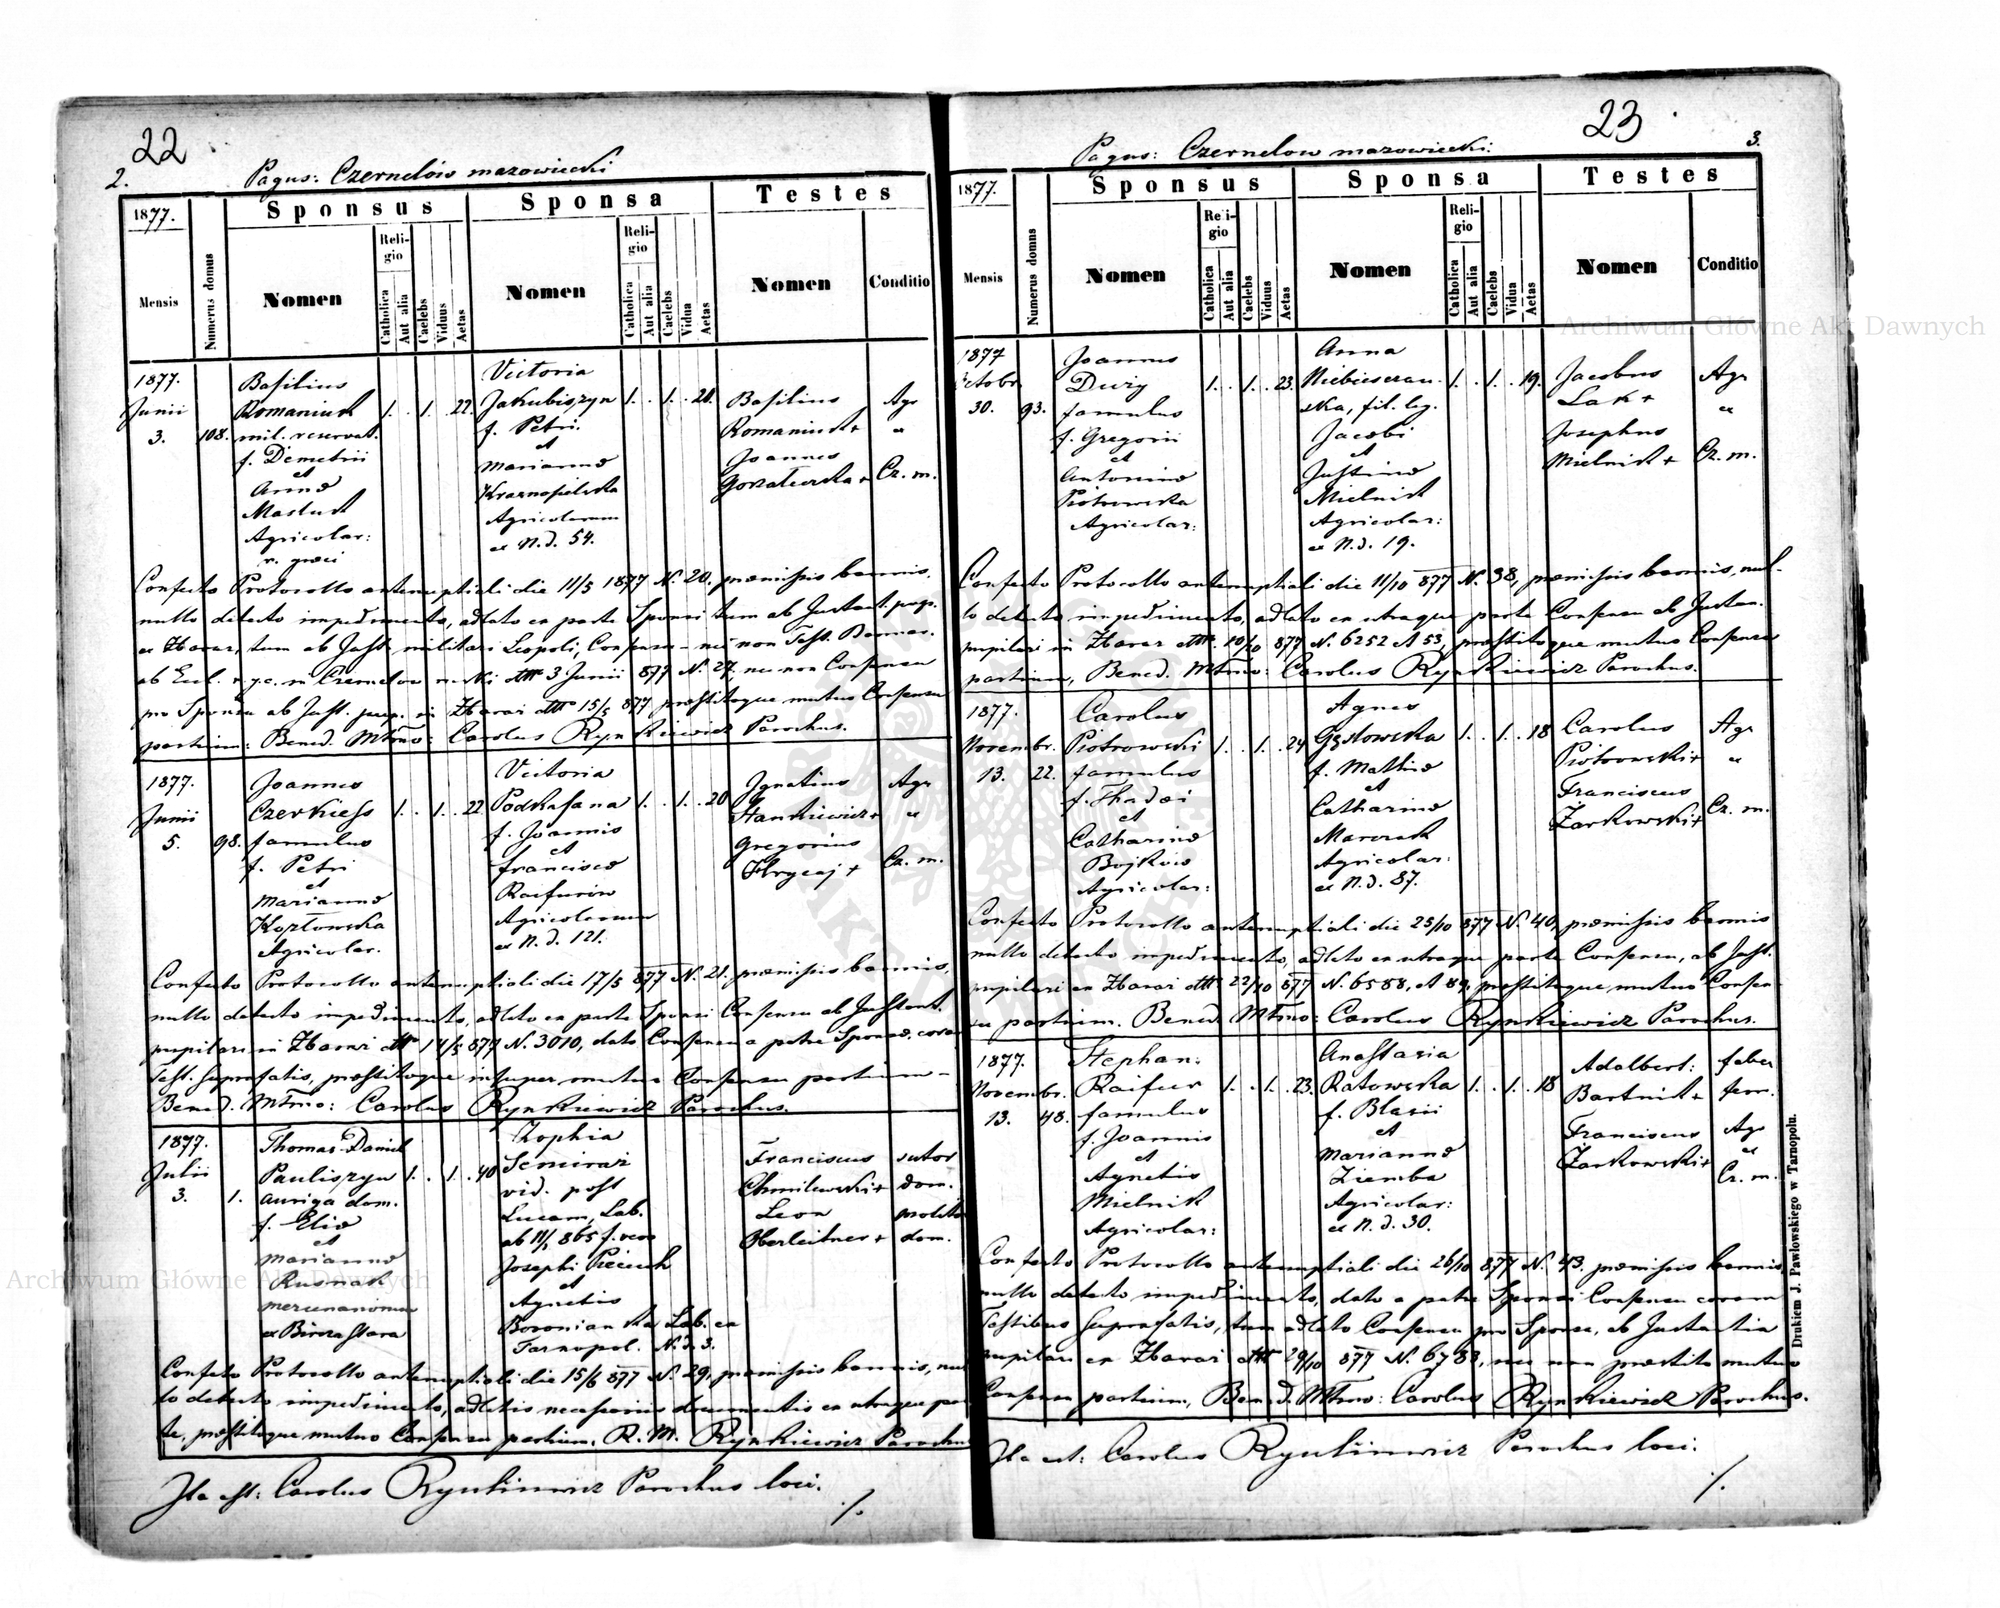 22
2.
Pagus: Czernelów mazowiecki
1877.
Sponsus
Sponsa
Testes
Mensis
Numerus domus
Nomen
Religio
Catholica
Aut alia
Caelebs
Viduus
Aetas
Nomen
Religio
Catholica
Aut alia
Caelebs
Vidua
Aetas
Nomen
Conditio
1877.
Junii
3.
108.
Basilius
Romaniuk
mil. reservat.
f. Demetrii
et
Annæ
Masluk
Agricolar:
r. græci
1. . 1. . 22.
Victoria
Jakubiszyn
f. Petri
et
Mariannæ
Krasnopilska
Agricolarum
ex N.d. 54.
1. . 1. . 20.
Basilius
Romaniuk +
Joannes
+
Agr
"
Cz. m.
Confecto Protocollo antenuptiali die 11/5 1877 N. 20. præmissis bannis,
nullo detecto impedimento, adlato ex parte Sponsi tum ab Instant. pup.
ex Zbaraż, tum ab Inst. militari Leopoli, Consensu - nec non Test. Bannor.
ab Eccl. r. g. c. in Czernelów 3 Junii 877 N. 27, nec non Consensu
pro Sponsa ab Inst. pup. in Zbaraż 15/5 877 præstitoque mutuo Consensu
partium: Bened. Mtrmo: Carolus Rynkiewicz Parochus.
1877.
Junii
5.
98.
Joannes
Czerkiess
famulus
f. Petri
et
Mariannæ
Kozłowska
Agricolar.
1. . 1. . 22
Victoria
Podkasana
f. Joannis
et
Franciscæ
Agricolarum
ex N. d. 121.
1. . 1. . 20
Ignatius
Stankiewicz +
Gregorius
Hrycaj +
Agr
"
Cz. m.
Confecto Protocollo antenuptiali die 17/5 877 N. 21. præmissis bannis,
nullo detecto impedimento, adlato ex parte Sponsi Consensu ab Instant.
pupilari in Zbaraż 14/5 877 N. 3010, dato Consensu a patre Sponsæ, coram
Test. suprafatis, præstitoque insuper mutuo Consensu partium -
Bened. Mtrmo: Carolus Rynkiewicz Parochus.
1877.
Julii
3.
1.
Thomas Daniel
Pauliszyn
auriga dom.
f. Eliæ
et
Mariannæ
Rusnak
1. . 1. . 40
Zophia
Semiraz
vid. post
Lucam, Lab.
ab 11/1 865 f. vero
Josephi
et
Agnetis
Lab. ex
Tarnopol. N. d. 3.
Franciscus
Chmilewski +
Leon
Oberleitner +
sutor
dom.
molitor
dom.
Confecto Protocollo antenuptiali die 15/6 877 N. 29, præmissis bannis, nul
lo detecto impedimento, adlatis necessariis documentis ex utraque par
te, præstitoque mutuo Consensu partium. R. M. Rynkiewicz Parochus
Ita est: Carolus Rynkiewicz Parochus loci.
./.
23
3.
Pagus: Czernelow mazowiecki.
1877.
Sponsus
Sponsa
Testes
Mensis
Numerus domus
Nomen
Religio
Catholica
Aut alia
Caelebs
Viduus
Aetas
Nomen
Religio
Catholica
Aut alia
Caelebs
Vidua
Aetas
Nomen
Conditio
1877
Octobr.
30.
93.
Joannes
famulus
f. Gregorii
et
Antoninæ
Piotrowska
Agricolar:
1. . 1. . 23.
Anna
Niebieszczan-
ska, fil. leg.
Jacobi
et
Justinæ
Mielnik
Agricolar:
ex N. d. 19.
1. . 1. . 19.
Jacobus
Lak +
Josephus
Mielnik +
Agr
"
Cz. m.
Confecto Protocollo antenuptiali die 11/10 877 N. 38, præmissis bannis, nul-
lo detecto impedimento, adlato ex utraque parte Consensu ab Instan.
pupilari in Zbaraż 10/10 877 N. 6252 et 53, præstitoque mutuo Consensu
partium, Bened. Mtrmo: Carolus Rynkiewicz Parochus.
1877.
Novembr.
13.
22.
Carolus
Piotrowski
famulus
f. Thadæi
et
Catharinæ
Bojków
Agricolar:
1. . 1. . 24
Agnes
f. Mathiæ
et
Catharinæ
Marczak
Agricolar:
ex N. d. 87.
1. . 1. . 18
Carolus
Piotrowski +
Franciscus
Żarkowski +
Agr
"
Cz. m.
Confecto Protocollo antenuptiali die 25/10 877 N. 40, præmissis bannis
nullo detecto impedimento, adlato ex utraque parte Consensu, ab Inst.
pupilari ex Zbaraż 22/10 877 N. 6588, et 89, præstitoque, mutuo Consen-
su partium. Bened. Mtrmo: Carolus Rynkiewicz Parochus.
1877.
Novembr.
13.
48.
Stephan:
Raifur
famulus
f. Joannis
et
Agnetis
Mielnik
Agricolar:
1. . 1. . 23.
Anastasia
Ratowska
f. Blasii
et
Mariannæ
Ziemba
Agricolar:
ex N. d. 30.
1. . 1. . 18
Adalbert:
Bartnik +
Franciscus
Żarkowski +
faber
ferr.
Agr
"
Cz. m.
Confecto Protocollo antenuptiali die 26/10 877 N. 43. præmissis bannis,
nullo detecto impedimento, dato a patre Sponsi Consensu coram
Testibus suprafatis, tum adlato Consensu pro Sponsa, ab Instantia
pupilari ex Zbaraż 29/10 877 N. 6783, nec non præstito mutuo
Consensu partium, Bened. Mtrmo: Carolus Rynkiewicz Parochus.
Ita est: Carolus Rynkiewicz Parochus loci.
./.
Drukiem J. Pawłowskiego w Tarnopolu.
Archiwum Główne Akt Dawnych
Archiwum Główne Akt Dawnych